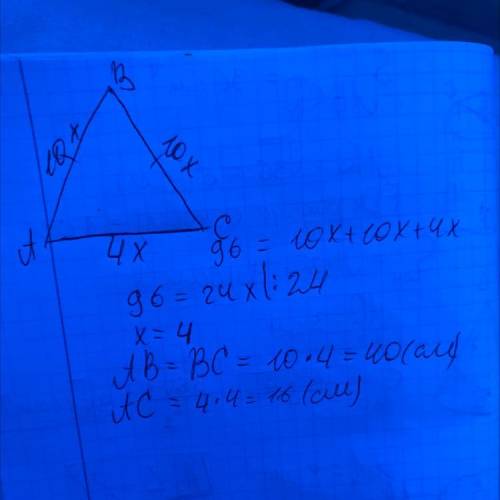 B
10x 10x
A 4x C
96 = 10x+10x+4x
96 = 24x |: 24
x = 4
AB = BC = 10·4 = 40(см)
AC = 4·4 = 16 (см)